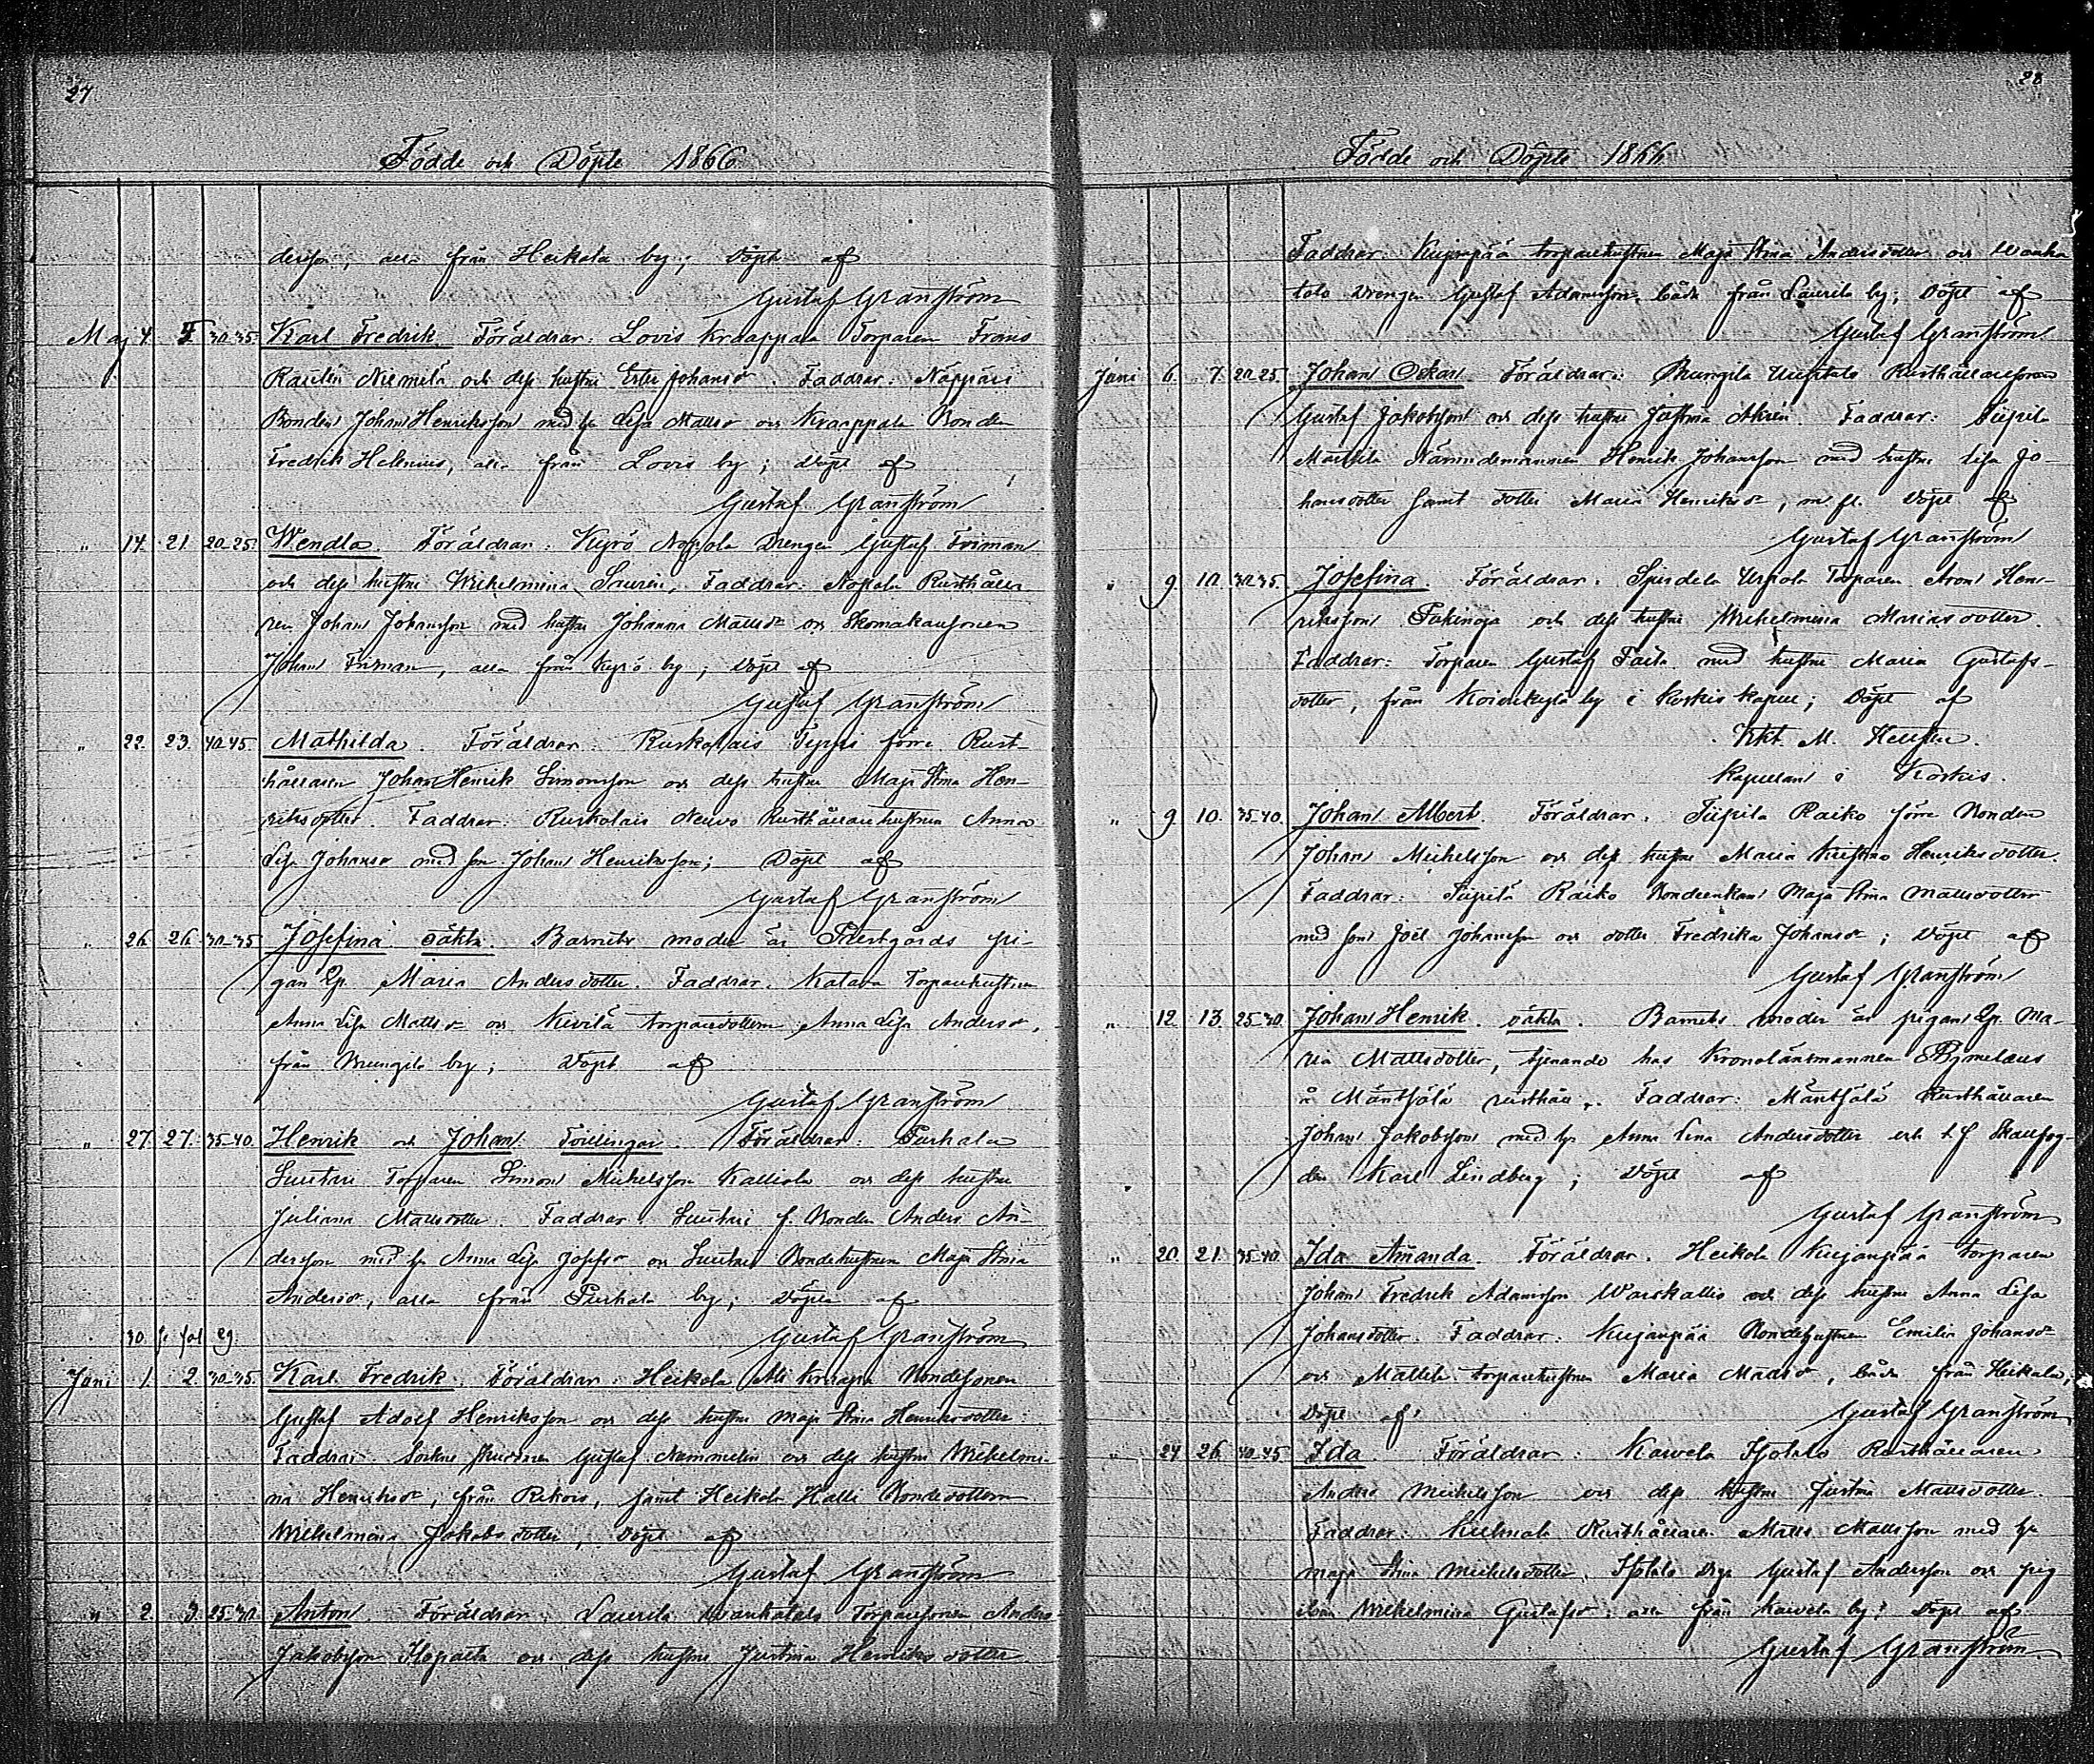 27
Födde och Döpte 1866
derson, alla från Heikola by; döpt af
Gustaf Granström
Maj 4. 5. 30-35. Karl Fredrik. Föräldrar: Lovis Kraappala Torparen Frans
Niemelä och dess hustru Ester Johansdr. Faddrar: Näppäri
Bonden Johan Henriksson med h. Lisa Mattsdr och Kraappala Bonden
Fredrik Helenius, alla från Lovis by; döpt af
Gustaf Granström
" 14. 21. 20-25. Wendla. Föräldrar: Kyrö Nopola Drengen Gustaf Friman
och dess hustru Wilhelmina Lauren. Faddrar: Nopola Rusthålla-
ren Johan Johansson med hustru Johanna Mattsdr och Skomakaresonen
Johan Friman, alla från Kyrö by; döpt af
Gustaf Granström
" 22. 23. 40-45 Mathilda. Föräldrar: Ruskolais Typpi förre Rust-
hållaren Johan Henrik Simonsson och dess hustru Maja Stina Hen-
riksdotter. Faddrar: Ruskolais Neuvo Rusthållarehustrun Anna
Lisa Johansdr med son Johan Henriksson; döpt af
Gustaf Granström
" 26. 26. 30-35 Josefina oäkta. Barnets moder är Prestgårds pi-
gan Qp. Maria Andersdotter. Faddrar: Katava Torparehustrun
Anna Lisa Mattsdr och Kivilä torparedottern Anna Lisa Andersdr,
från Mungila by; döpt af
Gustaf Granström
" 27. 27. 35-40. Henrik och Johan Tvillingar. Föräldrar: Purhala
Suutari Torparen Simon Michelsson Kalliola och dess hustru
Juliana Mattsdotter. Faddrar: Suutari f. Bonden Anders An-
dersson med h. Anna Lisa Josefsdr och Suutari Bondehustrun Maja Stina
Andersdr, alla från Purhala by; döpta af
30. se fol 29. Gustaf Granström
Juni 1. 2. 30-35. Karl Fredrik. Föräldrar: Heikola Ali Knaapi Bondesonen
Gustaf Adolf Henriksson och dess hustru Maja Stina Henriksdotter.
Faddrar: Sockne skräddaren Gustaf Nummelin och dess hustru Wilhelmi-
na Henriksdr, från Rekois, samt Heikola Halli Bondedottern
Wilhelmina Jakobsdotter, döpt af
Gustaf Granström
" 2. 3. 25-30. Anton. Föräldrar: Laurila Wanhatalo Torparesonen Anders
Jakobsson och dess hustru Justina Henriksdotter
28
Födde och Döpte 1866
Faddrar: Kujanpää torparehustrun Maja Stina Andersdotter och Wanha
talo Drengen Gustaf Adamsson, båda från Laurila by; döpt af
Gustaf Granström
Juni 6. 7. 20-25. Johan Oskar. Föräldrar: Mungila Uusitalo Rusthållaresonen
Gustaf Jakobsson och dess hustru Justina Ahrén. Faddrar:
Mattila Nämndemannen Henrik Johansson med hustru Lisa Jo-
hansdotter samt dotter Maria Henriksdr, m. fl. döpt af
Gustaf Granström
" 9. 10. 30-35. Josefina. Föräldrar: Spurila Urpola Torparen Aron Hen-
riksson och dess hustru Wilhelmina Mariasdotter.
Faddrar: Torparen Gustaf med hustru Maria Gustafs-
dotter, från Koivukylä by i Koskis kapell; döpt af
M.
Kapellan i Koskis.
" 9 10. 35-40. Johan Albert. Föräldrar: Tiipilä Raiko förre Bonden
Johan Michelsson och dess hustru Maria Kristina Henriksdotter.
Faddrar: Tiipilä Raiko Bondeenkan Maja Stina Mattsdotter
med son Joel Johansson och dotter Fredrika Johansdr; döpt af
Gustaf Granström
" 12. 13. 25-30 Johan Henrik. oäkta. Barnets moder är pigan Qp. Ma-
ria Mattsdotter, tjenande hos Kronolänsmannen
å Mäntsälä rusthåll. Faddrar: Mäntsälä Rusthållaren
Johan Jakobsson med h. Anna Lena Andersdotter och t.f. Skallfog-
den Karl Lindberg; döpt af
Gustaf Granström
" 20. 21. 35-40. Ida Amanda. Föräldrar: Heikola Kujanpää torparen
Johan Fredrik Adamsson Warskallio och dess hustru Anna Lisa
Johansdotter. Faddrar: Kujanpää Bondehustrun Emilia Johansdr
och Mattila torparehustrun Maria Mattsdr, båda från Heikola,
döpt af Gustaf Granström
" 24 26. 40-45 Ida. Föräldrar: Karvela Isotalo Rusthållaren
Anders Michelsson och dess hustru Justina Mattsdotter.
Faddrar: Rusthållaren Matts Mattsson med h.
Maja Stina Michelsdotter, Isotalo Dr. Gustaf Andersson och pig
Wilhelmina Gustafsdr: alla från Karvela by; döpt af
Gustaf Granström.